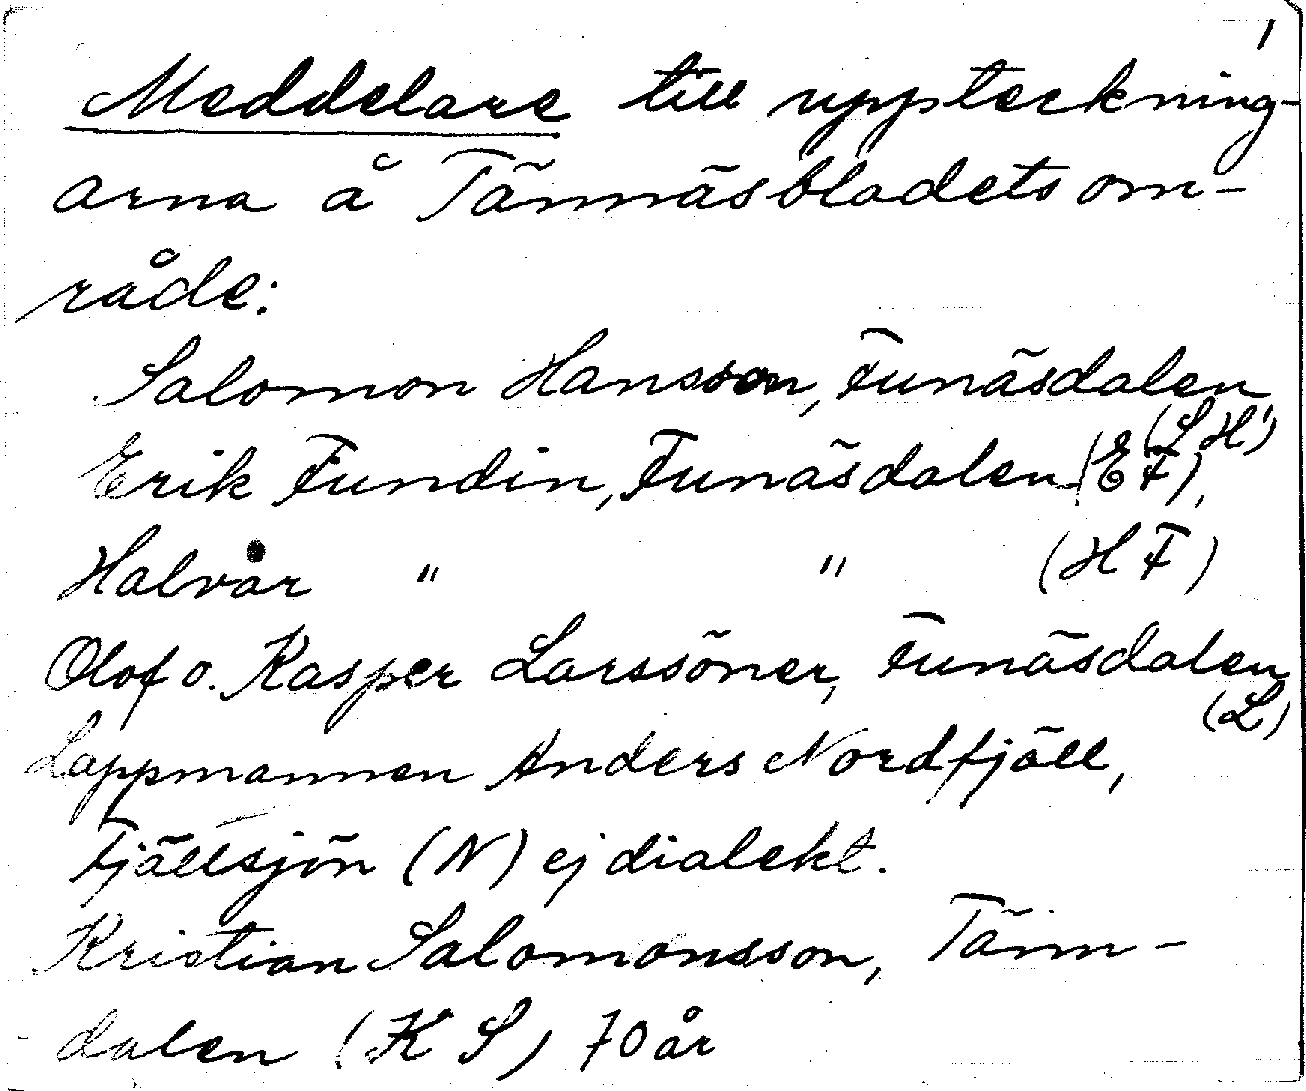 1
Meddelare till uppteckning-
arna å Tännäsbladets om-
råde:
Salomon Hansson, Funäsdalen
(S H)
Erik Fundin, Funäsdalen (E F),
Halvar " " (H F)
Olof o. Kasper Larssöner, Funäsdalen
(L)
Lappmannen Anders Nordfjäll,
Fjällsjön (N) ej dialekt.
Kristian Salomonsson, Tänn-
dalen (K S) 70 år